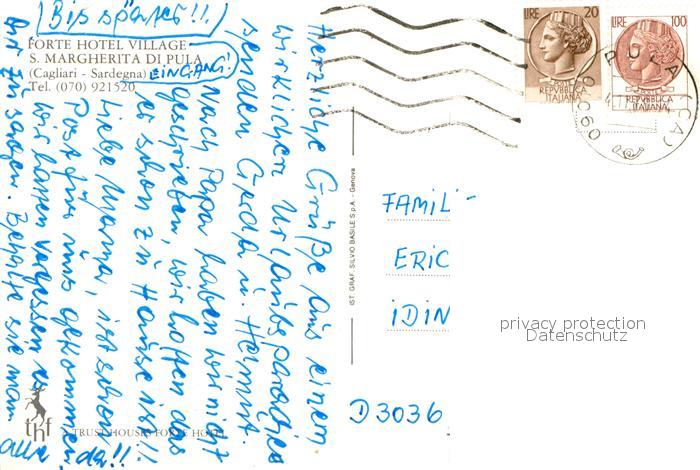 (Bis später!!)
FORTE HOTEL VILLAGE
S. MARGHERITA DI PULA
(Cagliari - Sardegna)
Tel. (070) 921520
EINGANG!
Herzliche Grüße aus einem
wirklichen Urlaubsparadies
senden Gerda u. Helmut.
Nach Papa haben wir nicht
geschrieben, wir hoffen das
er schon zu Hause ist!!
Liebe Mama, ist schon
Post für uns gekommen
wir hatten vergessen es
Dir zu sagen. Behalte sie man
alle da!!
thf
A TRUST HOUSES FORTE HOTEL
IST. GRAF. SILVIO BASILE S.p.A. - Genova
LIRE 20
POSTE
REPVBBLICA
ITALIANA
LIRE 100
POSTE
REPVBBLICA
ITALIANA
PULA (CA)
FAMIL
ERIC
IDIN
D 3036
privacy protection
Datenschutz